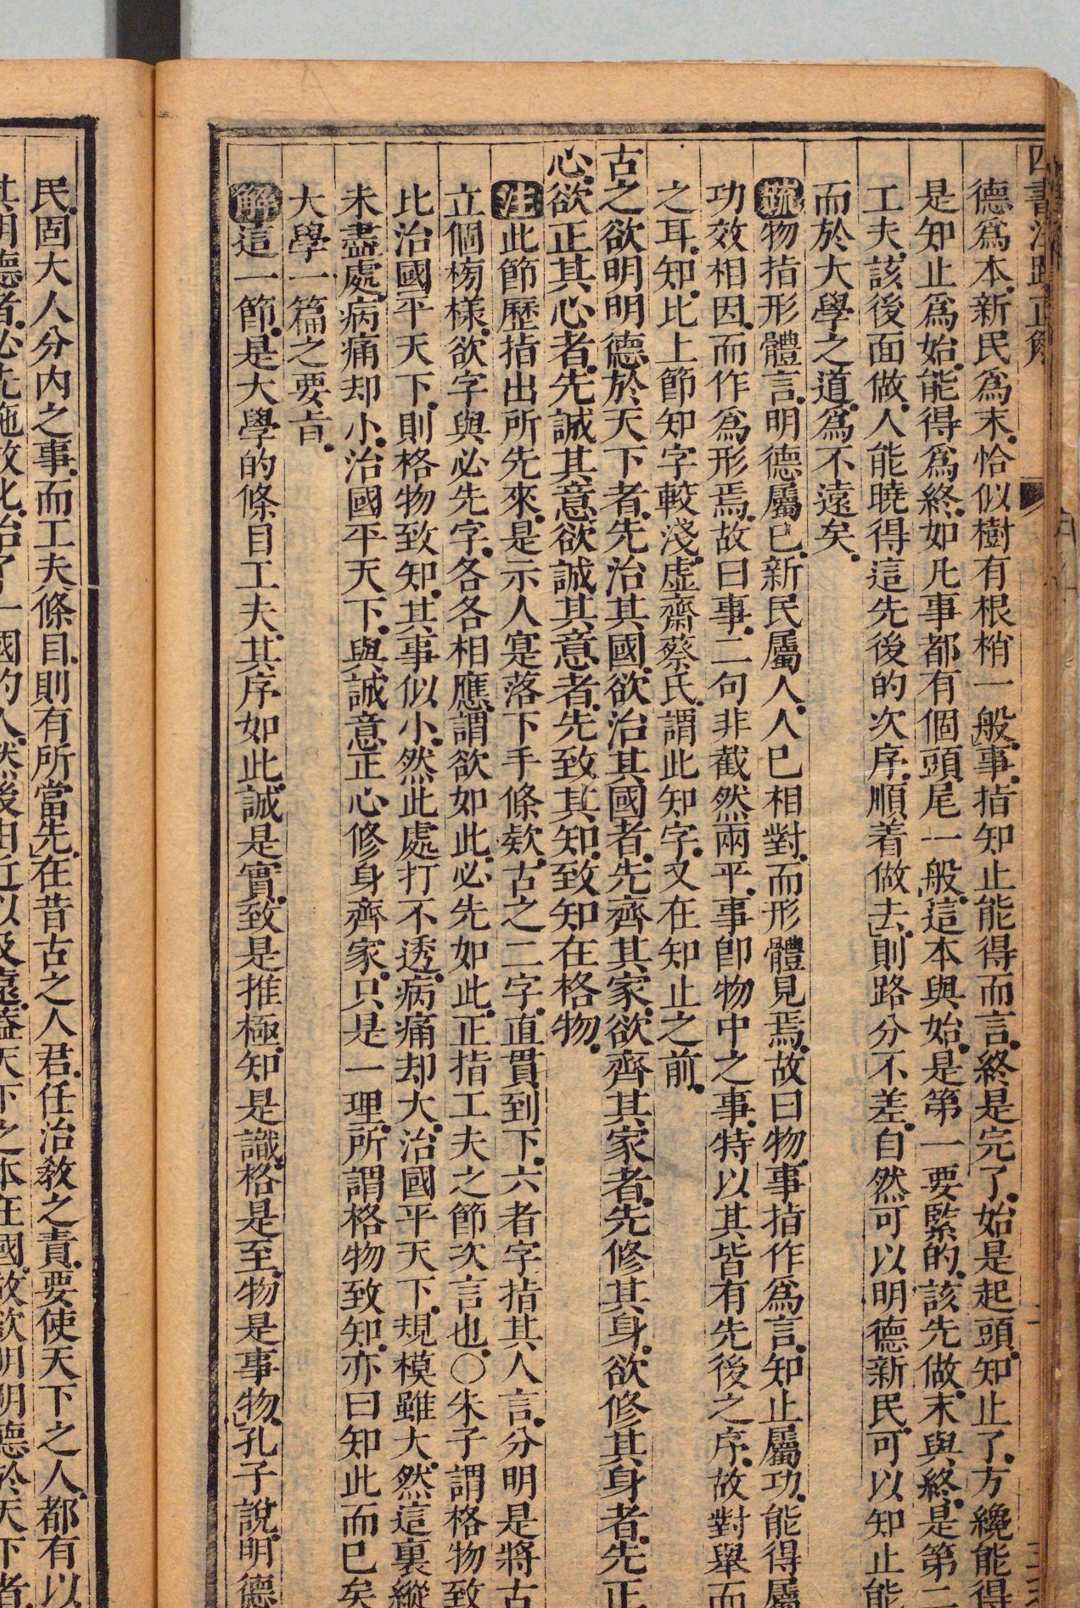 德爲本.新民爲末.恰似樹有根梢一般.事.指知止能得而言.終是完了.始是起頭.知止了.方纔能得
是知止爲始.能得爲終.如凡事都有個頭尾一般.這本與始.是第一要緊的.該先做.末與終.是第二
工夫.該後面做.人能曉得這先後的次序.順着做去.則路分不差.自然可以明德新民.可以知止能
而於大學之道.爲不遠矣.
疏物指形體言.明德屬已.新民屬人.人已相對.而形體見焉.故曰物.事指作爲言.知止屬功.能得屬
功效相因.而作爲形焉.故曰事.二句非截然兩平.事卽物中之事.特以其皆有先後之序.故對舉而
之耳.知.比上節知字較淺.虛齋蔡氏.謂此知字.又在知止之前.
古之欲明明德於天下者.先治其國.欲治其國者.先齊其家.欲齊其家者.先修其身.欲修其身者.先正
心.欲正其心者.先誠其意.欲誠其意者.先致其知.致知在格物.
注此節歷指出所先來.是示人寔落下手條欵.古之二字.直貫到下.六者字指其人言.分明是將古
立個榜樣.欲字與必先字.各各相應.謂欲如此.必先如此.正指工夫之節次言也.○朱子謂格物致
比治國平天下.則格物致知.其事似小.然此處打不透.病痛却大.治國平天下.規模雖大.然這裏縱
未盡處.病痛却小.治國平天下.與誠意正心修身齊家.只是一理.所謂格物致知.亦曰知此而已矣
大學一篇之要旨.
解這一節.是大學的條目工夫.其序如此.誠是實.致是推極.知是識.格是至.物是事物.孔子說.明德
民.固大人分內之事.而工夫條目.則有所當先.在昔古之人君.任治教之責.要使天下之人.都有以
其明德者.必先施教化.治了一國的人.然後由近以及遠.蓋天下之本在國.故欲明明德於天下者.